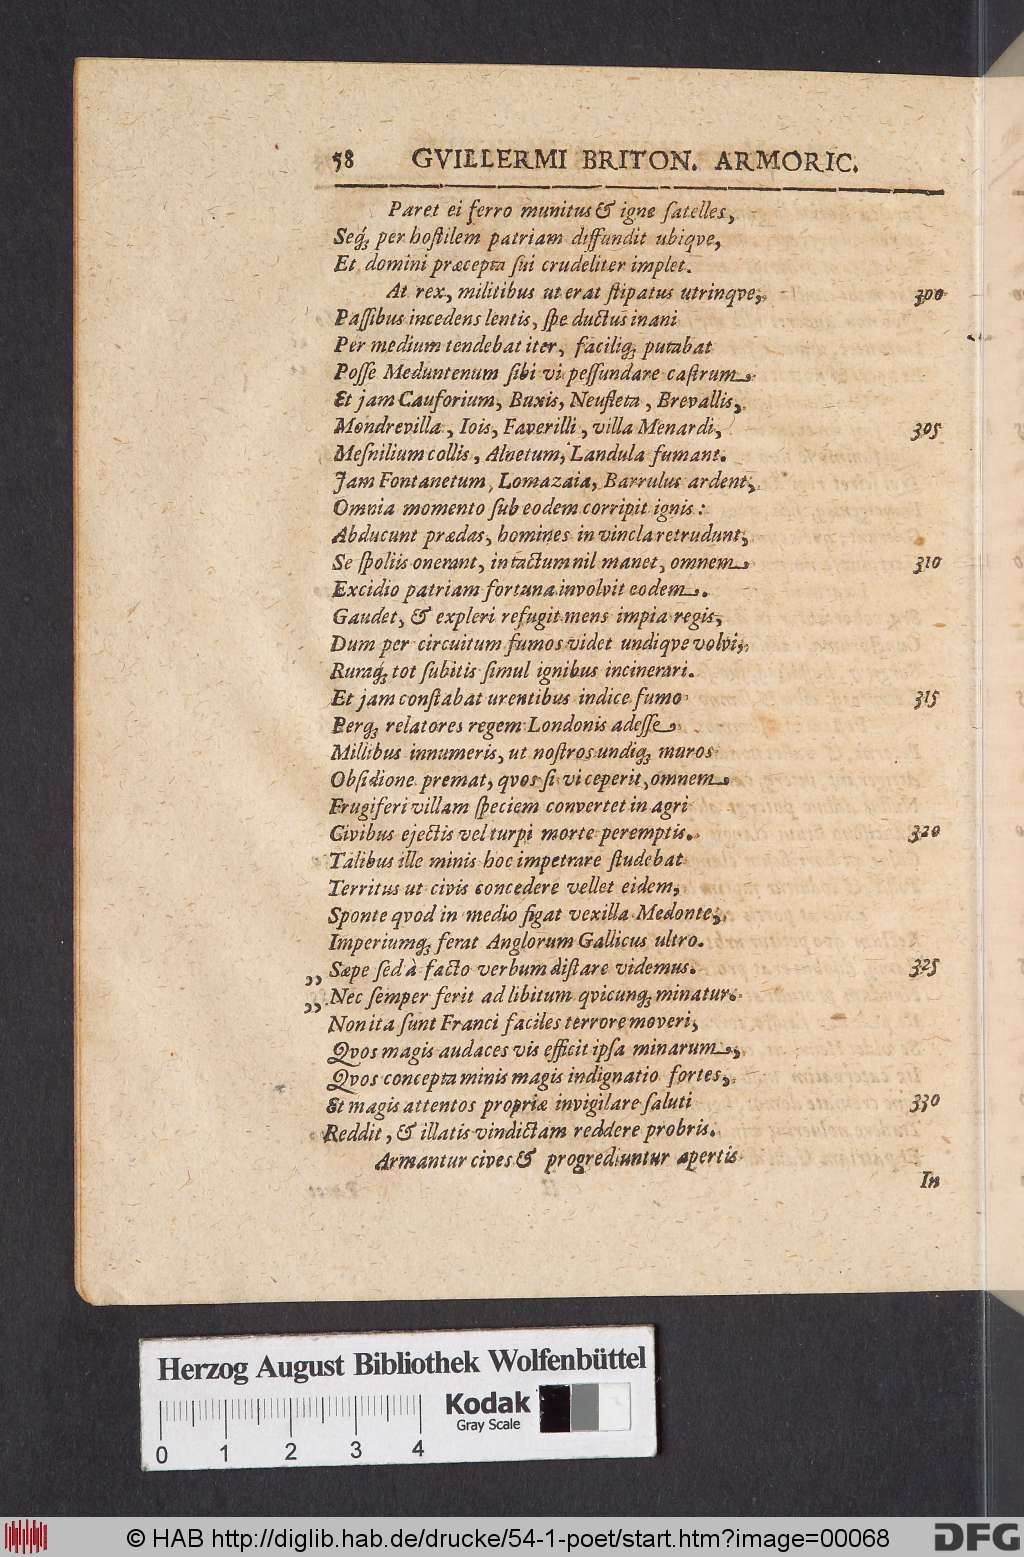 58 GVILLERMI BRITON. ARMORIC.
Paret ei ferro munitus & igne ſatelles,
Seq́ꝫ per hoſtilem patriam diffundit ubiqve,
Et domini præcepta ſui crudeliter implet.
At rex, militibus ut erat ſtipatus utrinqve, 300
Paſſibus incedens lentis, ſpe ductus inani
Per medium tendebat iter, faciliqꝫ putabat
Poſſe Meduntenum ſibi vi peſſundare caſtrum.
Et jam Cauforium, Buxis, Neufleta, Brevallis,
Mondrevilla, Iois, Faverilli, villa Menardi, 305
Meſnilium collis, Alnetum, Landula fumant.
Jam Fontanetum, Lomazaia, Barrulus ardent,
Omnia momento ſub eodem corripit ignis:
Abducunt prædas, homines in vincla retrudunt,
Se ſpoliis onerant, intactum nil manet, omnem 310
Excidio patriam fortuna involvit eodem.
Gaudet, & expleri refugit mens impia regis,
Dum per circuitum fumos videt undiqve volvi,
Ruraq́ꝫ tot ſubitis ſimul ignibus incinerari.
Et jam conſtabat urentibus indice fumo 315
Perqꝫ relatores regem Londonis adeſſe
Millibus innumeris, ut noſtros undiqꝫ muros
Obſidione premat, qvos ſi vi ceperit, omnem
Frugiferi villam ſpeciem convertet in agri
Civibus ejectis vel turpi morte peremptis. 320
Talibus ille minis hoc impetrare ſtudebat
Territus ut civis concedere vellet eidem,
Sponte qvod in medio figat vexilla Medonte,
Imperiumqꝫ ferat Anglorum Gallicus ultro.
„ Sæpe ſed à facto verbum diſtare videmus. 325
„ Nec ſemper ferit ad libitum qvicunqꝫ minatur.
Non ita ſunt Franci faciles terrore moveri,
Qvos magis audaces vis efficit ipſa minarum,
Qvos concepta minis magis indignatio fortes,
Et magis attentos propriæ invigilare ſaluti 330
Reddit, & illatis vindictam reddere probris.
Armantur cives & progrediuntur apertis
In
Herzog August Bibliothek Wolfenbüttel
Kodak
Gray Scale
0 1 2 3 4
© HAB http://diglib.hab.de/drucke/54-1-poet/start.htm?image=00068
DFG